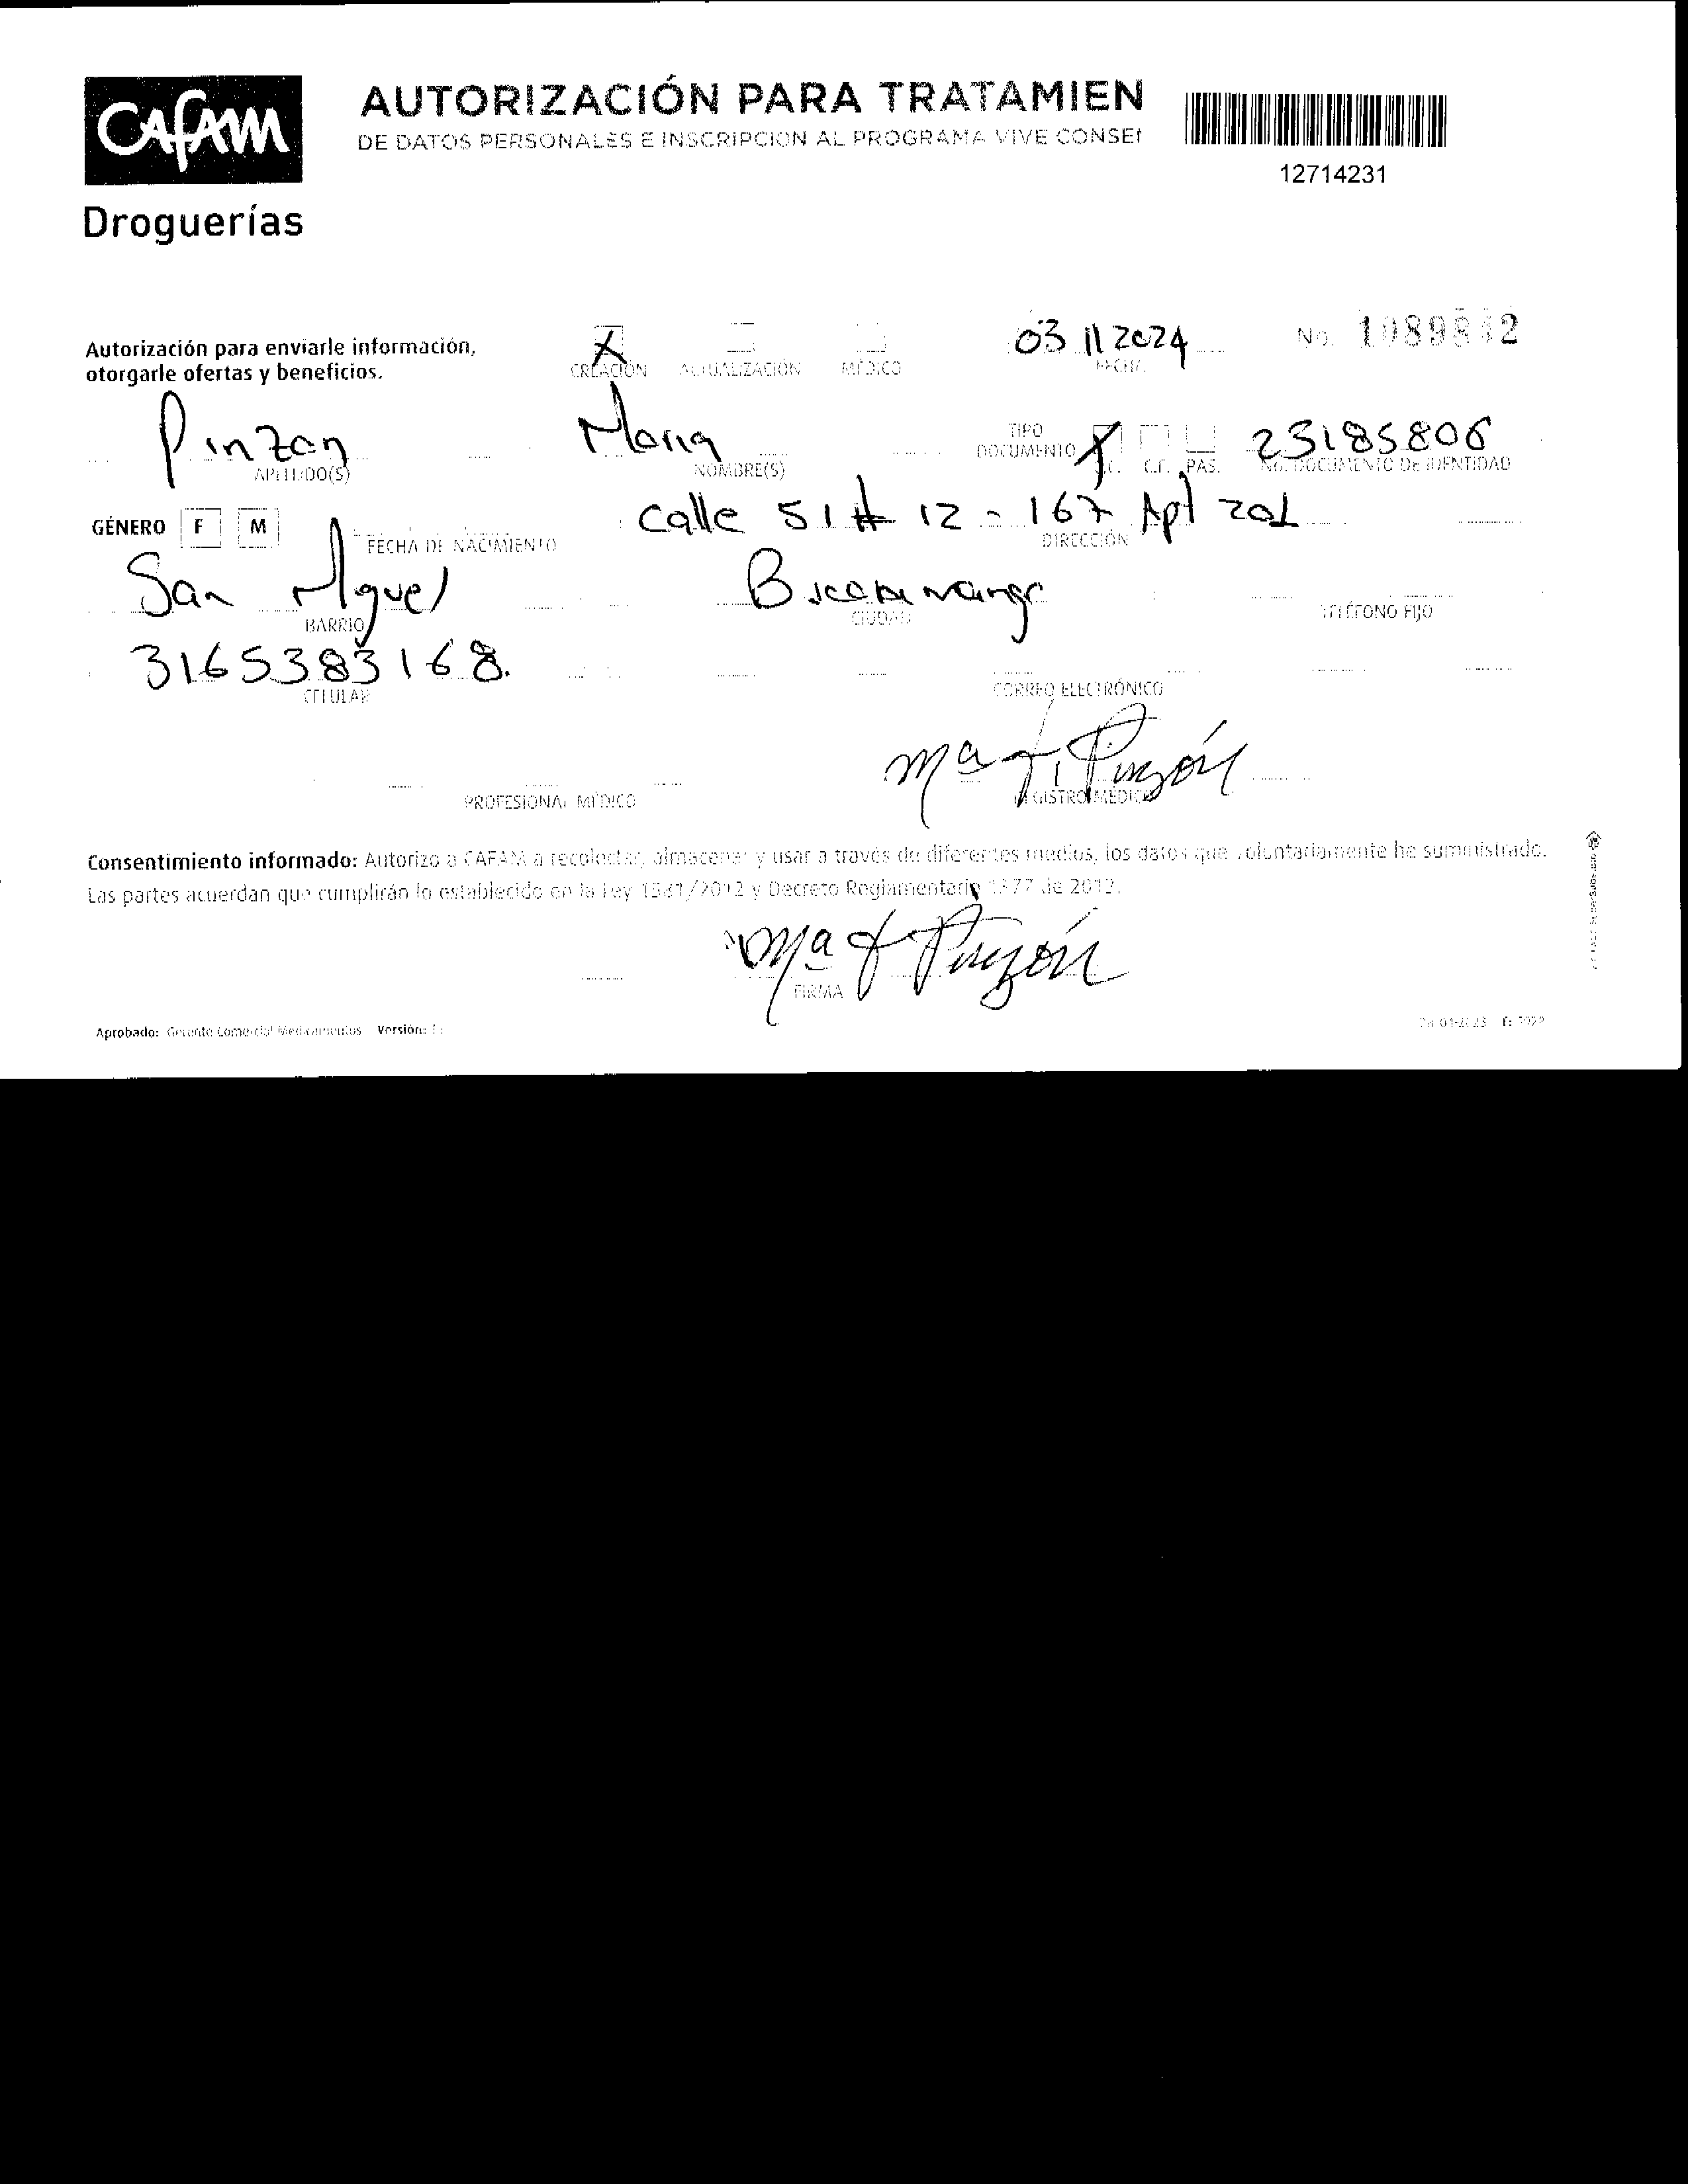 CAFAM
Droguerías
AUTORIZACIÓN PARA TRATAMIEN
DE DATOS PERSONALES E INSCRIPCION AL PROGRAMA VIVE CONSE
12714231
Autorización para enviarle información,
otorgarle ofertas y beneficios.
X
CREACIÓN ACTUALIZACIÓN MÉDICO
03 11 2024
FECHA
No. 1089842
Pinzon
APELLIDO(S)
Maria
NOMBRE(S)
TIPO
DOCUMENTO X C.C. C.E. PAS.
23185806
No. DOCUMENTO DE IDENTIDAD
GÉNERO F M
FECHA DE NACIMIENTO
calle 51 # 12 - 167 Apt 201
DIRECCIÓN
San Miguel
BARRIO
Bucaramanga
CIUDAD
TELÉFONO FIJO
3165383168.
CELULAR
CORREO ELECTRÓNICO
PROFESIONAL MÉDICO
Mª Pinzón
REGISTRO MÉDICO
Consentimiento informado: Autorizo a CAFAM a recolectar, almacenar y usar a través de diferentes medios, los datos que voluntariamente he suministrado.
Las partes acuerdan que cumplirán lo establecido en la Ley 1581/2012 y Decreto Reglamentario 1377 de 2012.
Mª Pinzón
FIRMA
Aprobado: Gerente Comercial Medicamentos Versión: